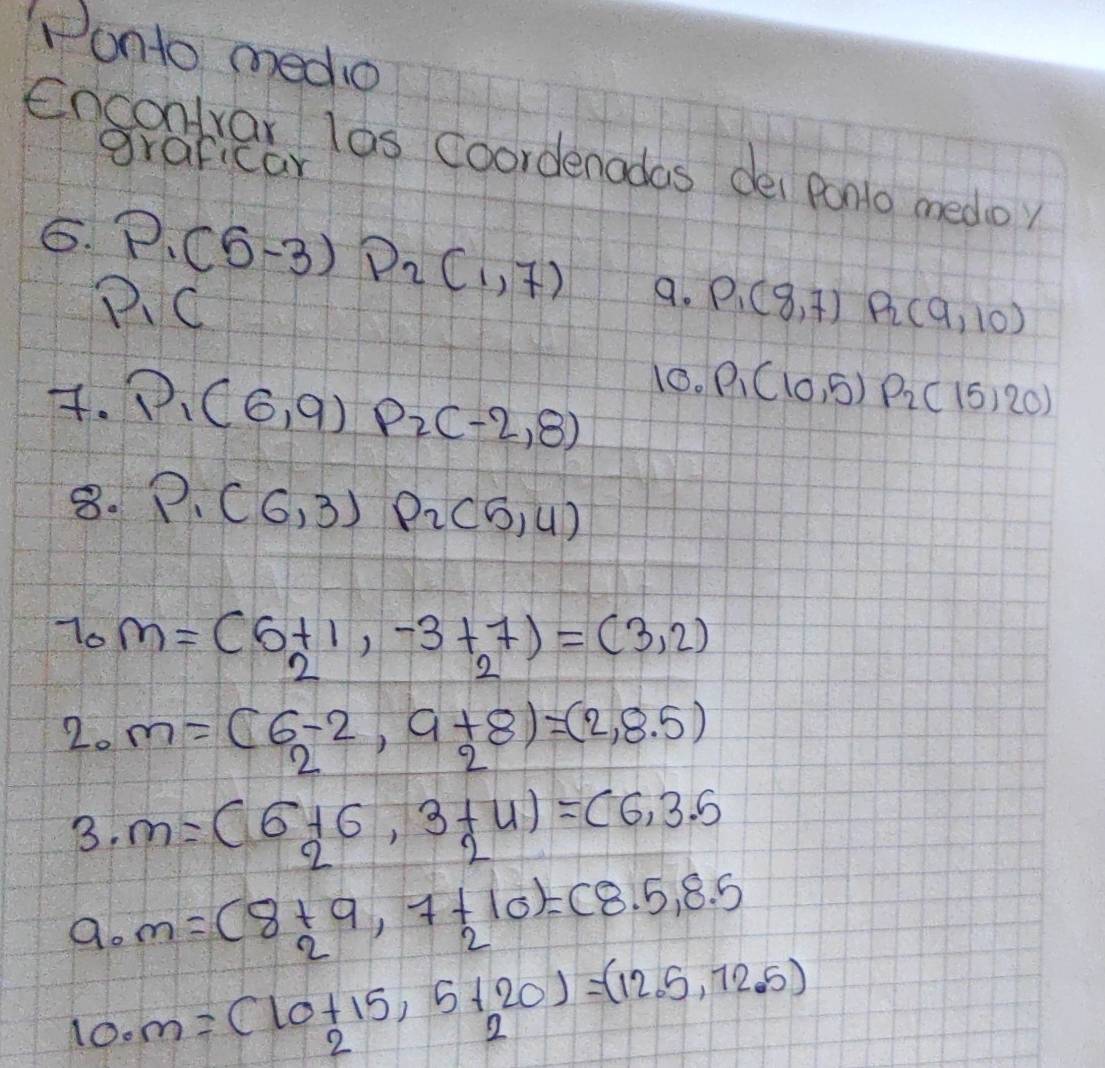 Ponto medio
Encontrar las coordenadas del ponto medio y
graficar
6. P₁(5-3) P₂(1,7)
P₁(
7. P₁(6,9) P₂(-2,8)
8. P₁(6,3) P₂(6,4)
9. P₁(8,7) P₂(9,10)
10. P₁(10,5) P₂(15,20)
1. m=(5+1/2, -3+7/2)=(3,2)
2. m=(6-2/2, 9+8/2)=(2,8.5)
3. m=(6+6/2, 3+4/2)=(6,3.5
9. m=(8+9/2, 7+10/2)=(8.5,8.5
10. m=(10+15/2, 5+20/2)=(12.5,12.5)